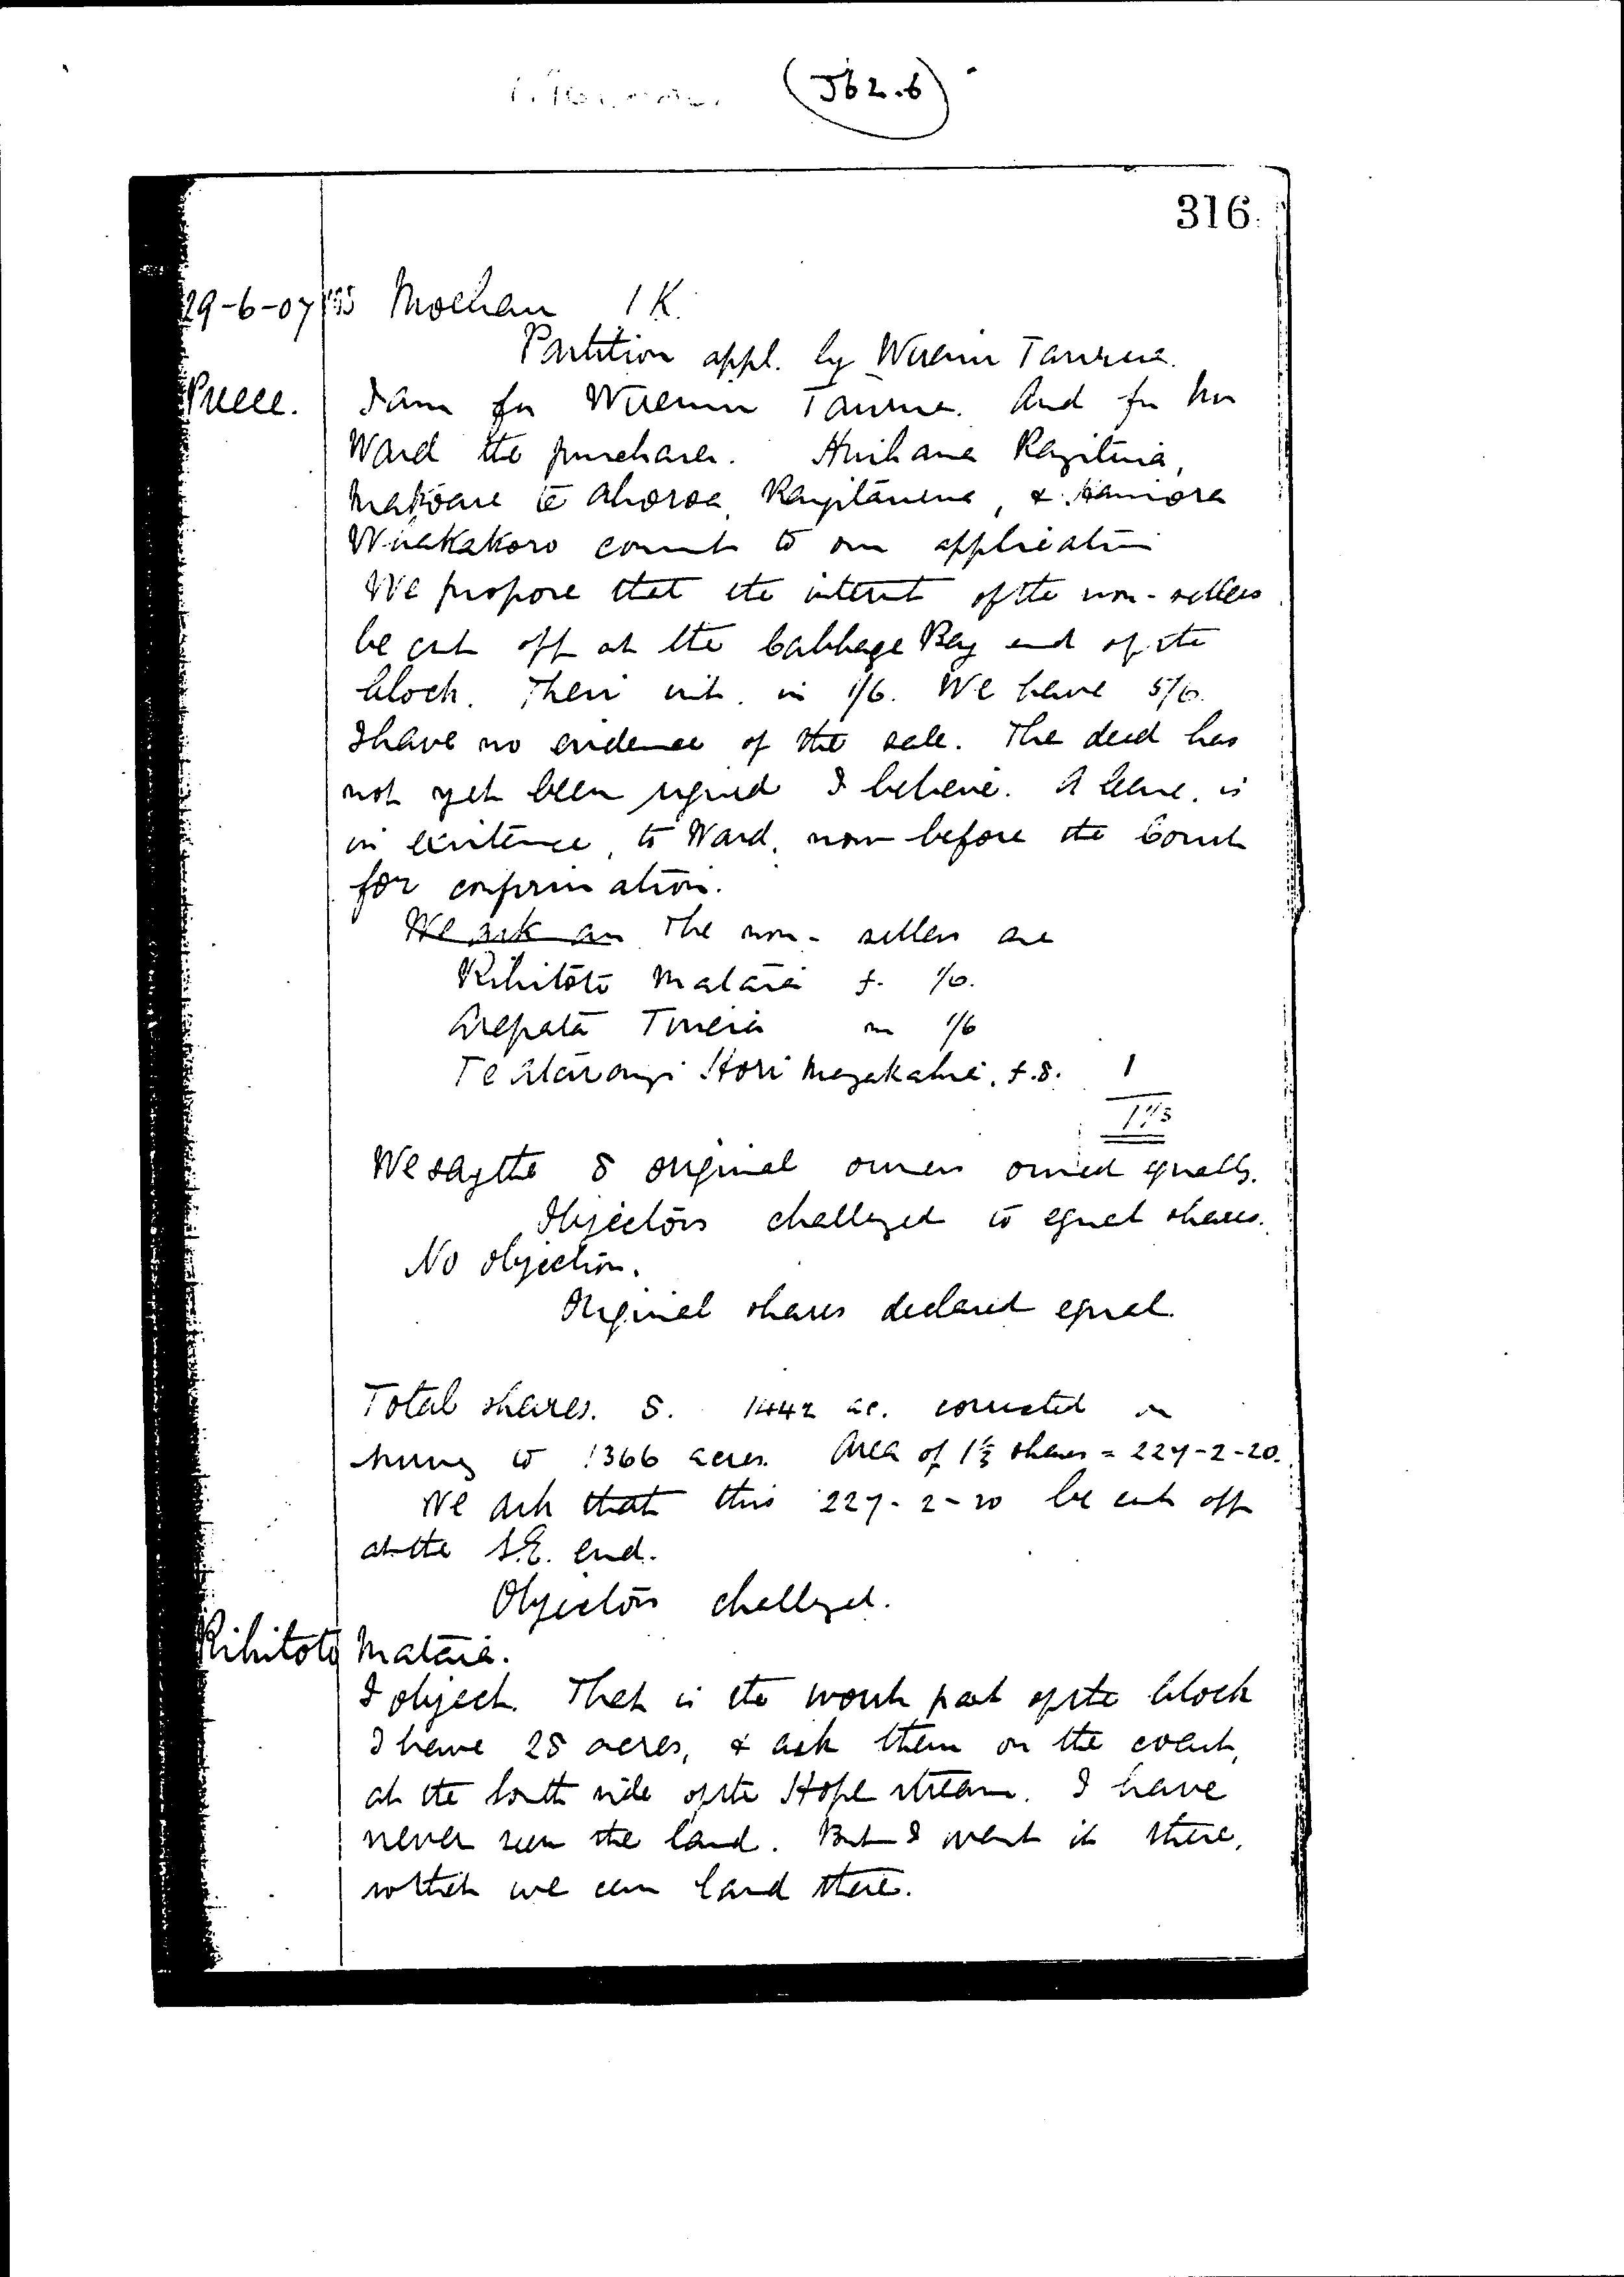 (J62.6)
316
29-6-07 Moehau 1K.
Partition appl. by Wiremu Taurua.
Preece. I am for Wiremu Taurua. And for Mr
Ward the purchaser. Huihana Rangituia,
Makoare te Ahoroa, Rangitauena, & Hamiora
Whakakoro consent to our application
We propose that the interest of the non-sellers
be cut off at the Cabbage Bay end of the
block. Their int. is 1/6. We have 5/6.
I have no evidence of the sale. The deed has
not yet been signed I believe. A lease is
in existence, to Ward, now before the Court
for confirmation.
We ask an The non-sellers are
Rihitoto Mataia f. 1/6.
Arepata Tineia m 1/6
Te Atarangi Hori Ngakahi, f.8. 1
1 1/3
We say the 8 original owners owned equally.
Objectors challenged to equal shares.
No objection.
Original shares declared equal.
Total shares. 8. 1442 ac. corrected on
survey to 1366 acres. Area of 1 1/3 shares = 227-2-20.
We ask that this 227-2-20 be cut off
at the S.E. end.
Objectors challenged.
Rihitoto Mataia.
I object. That is the worst part of the block
I have 28 acres, & ask them on the coast,
at the South side of the Hope stream. I have
never seen the land. But I want it there,
so that we can land there.